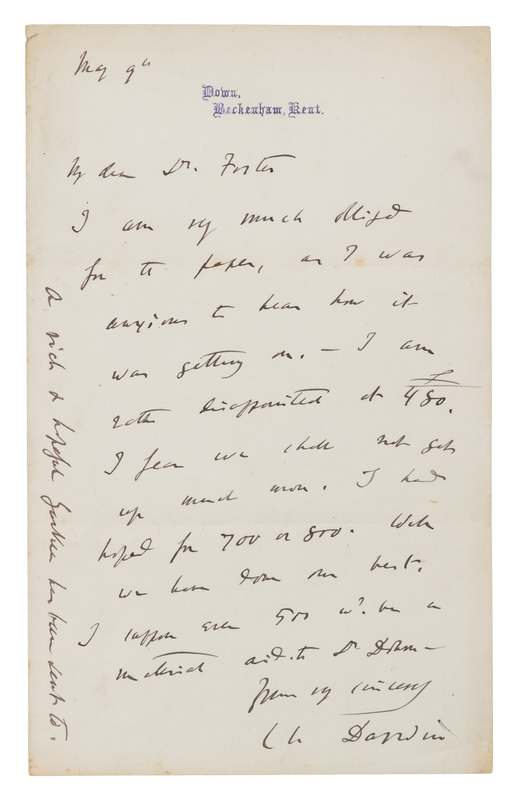 May 9th
Down,
Beckenham, Kent.
My dear Dr. Foster
I am very much obliged
for the paper, as I was
anxious to hear how it
was getting on. — I am
rather disappointed at £480.
I fear we shall not get
up much more. I had
hoped for 700 or 800. Well
we have done our best.
I suppose even 500 wd. be a
material aid to Dr Dohrn —
Yours very sincerely
Ch Darwin
A rich & hopeful has been sent to.